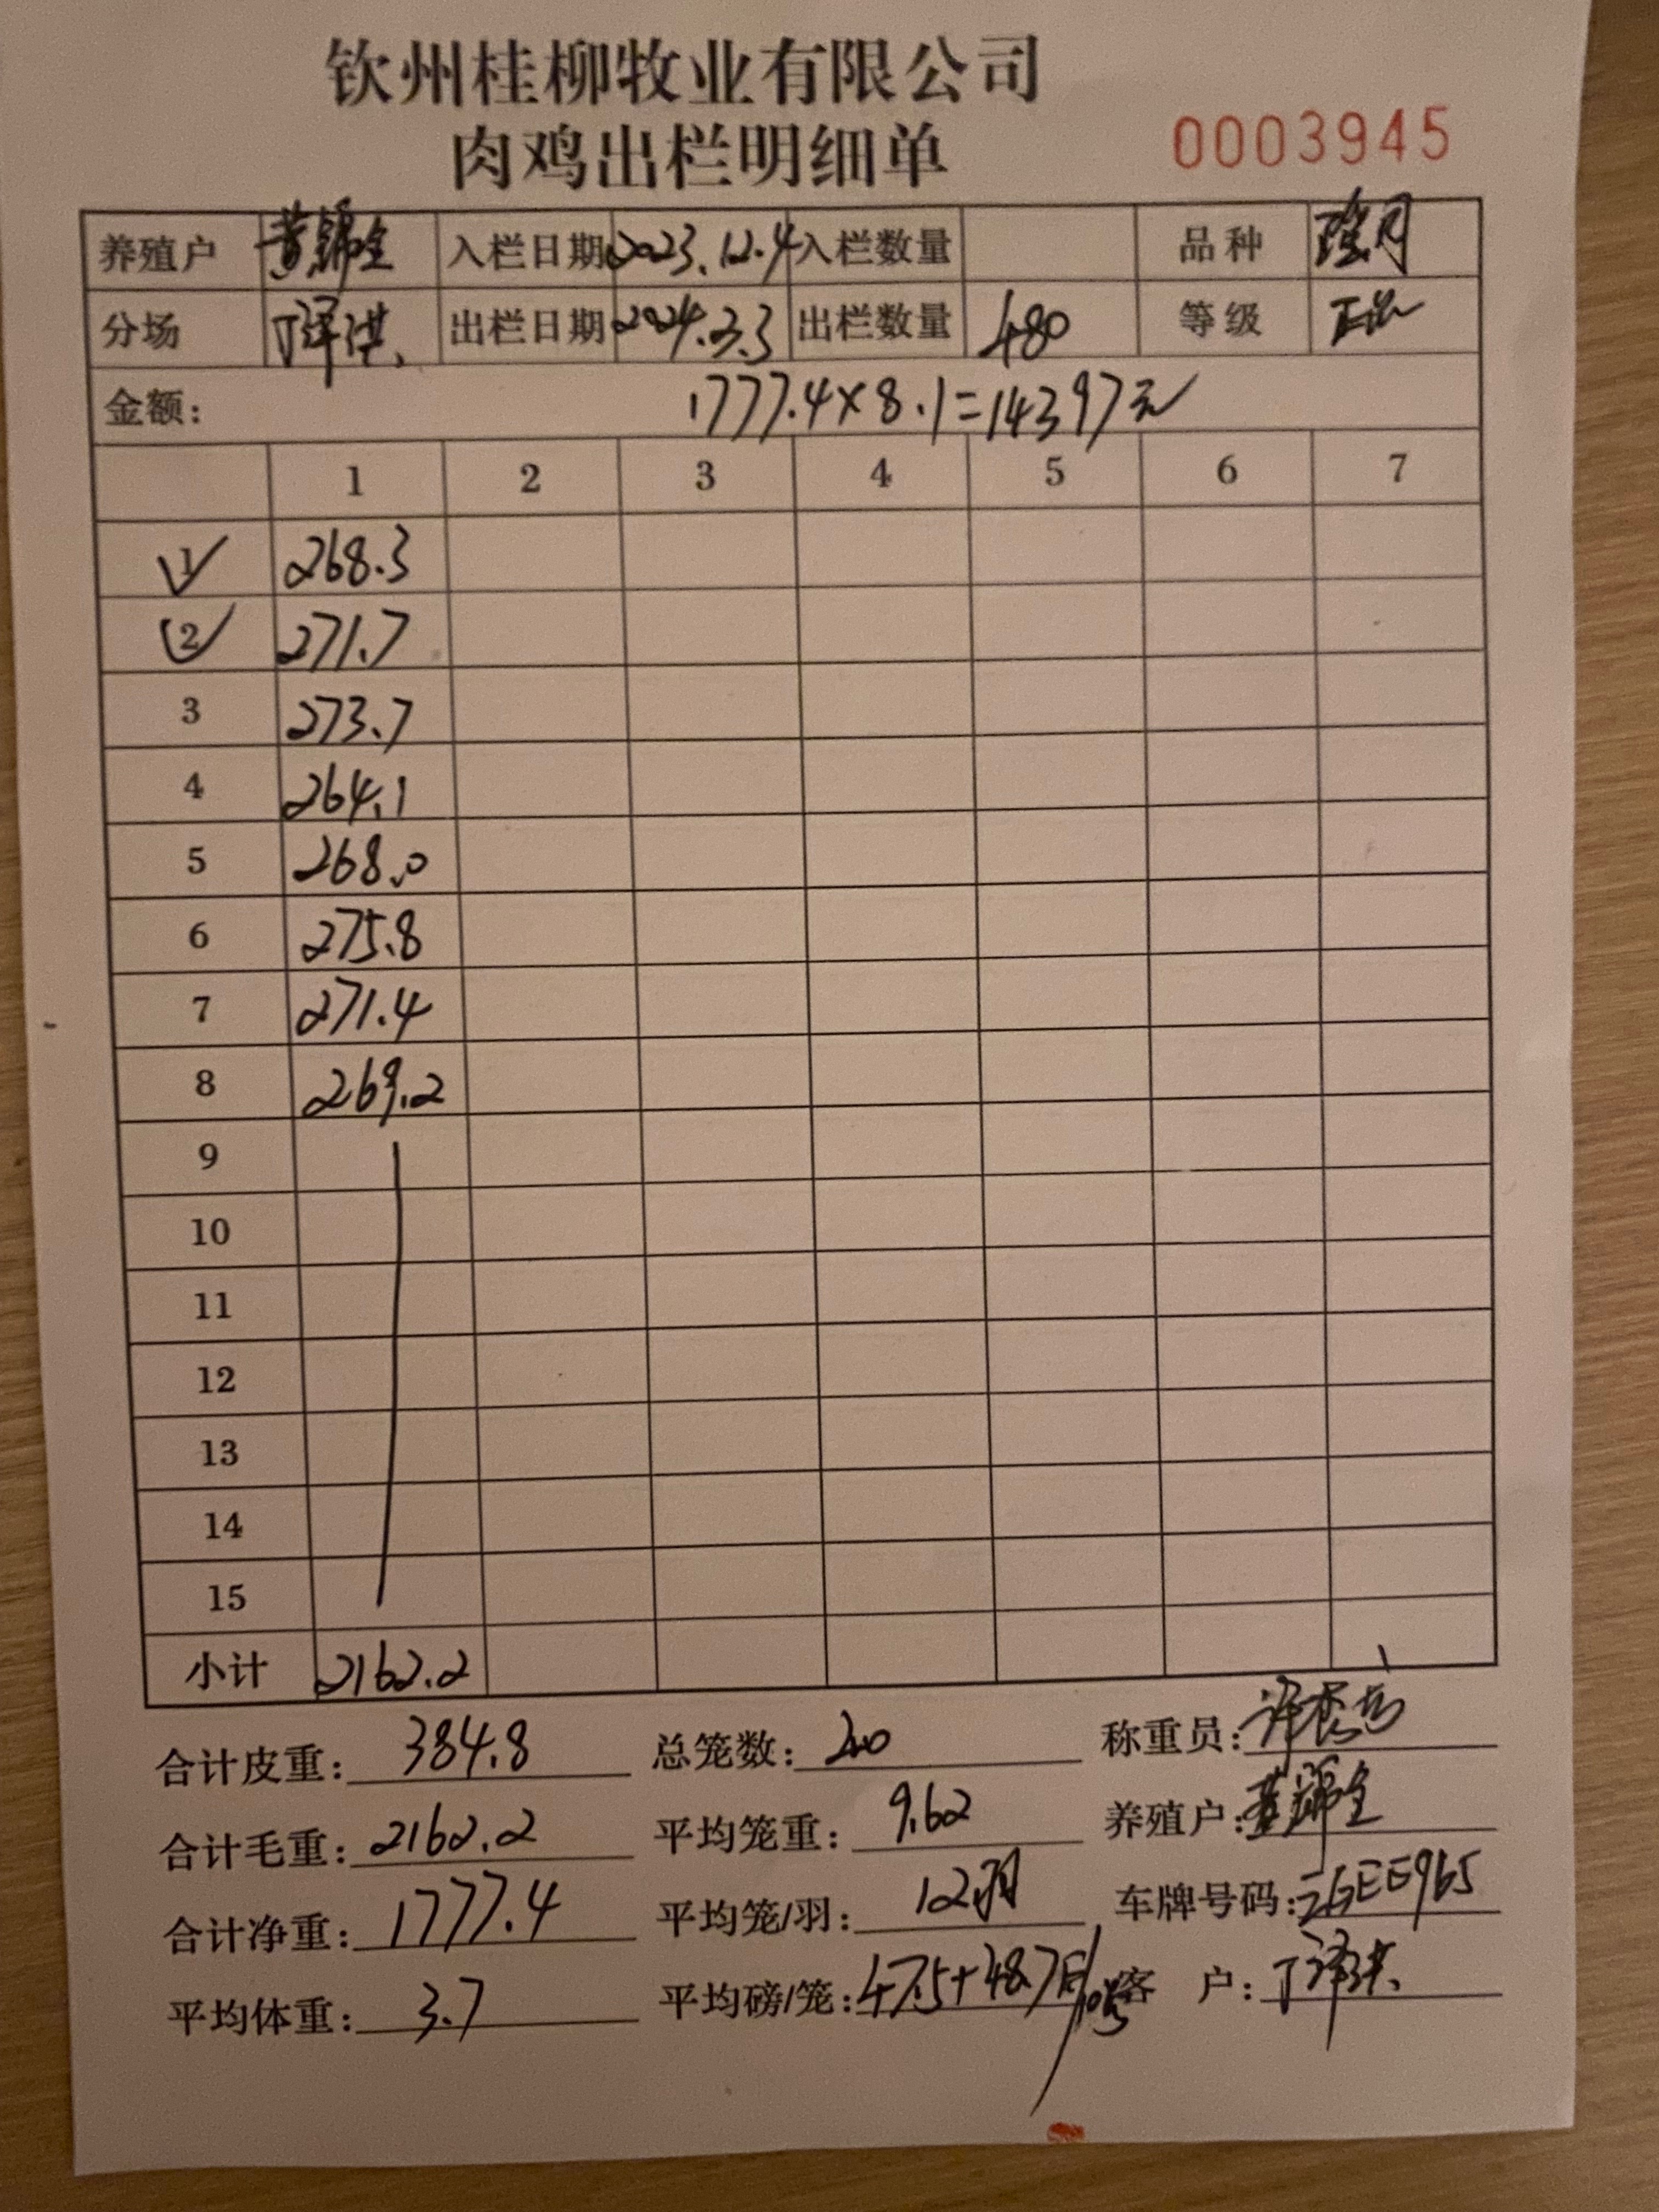 钦州桂柳牧业有限公司
肉鸡出栏明细单 0003945
养殖户 黄锦全 入栏日期 2023.12.4 入栏数量 品种
分场 丁泽洪、 出栏日期 2024.3.3 出栏数量 480 等级 正品
金额: 1777.4×8.1=14397元
1 2 3 4 5 6 7
1 268.3
2 271.7
3 273.7
4 264.1
5 268.0
6 275.8
7 271.4
8 269.2
9
10
11
12
13
14
15
小计 2162.2
合计皮重: 384.8 总笼数: 称重员:
合计毛重: 2162.2 平均笼重: 9.62 养殖户: 黄锦全
合计净重: 1777.4 平均笼/羽: 12羽 车牌号码: EE965
平均体重: 3.7 平均磅/笼: 47.5+48.7 客 户: 丁泽洪、